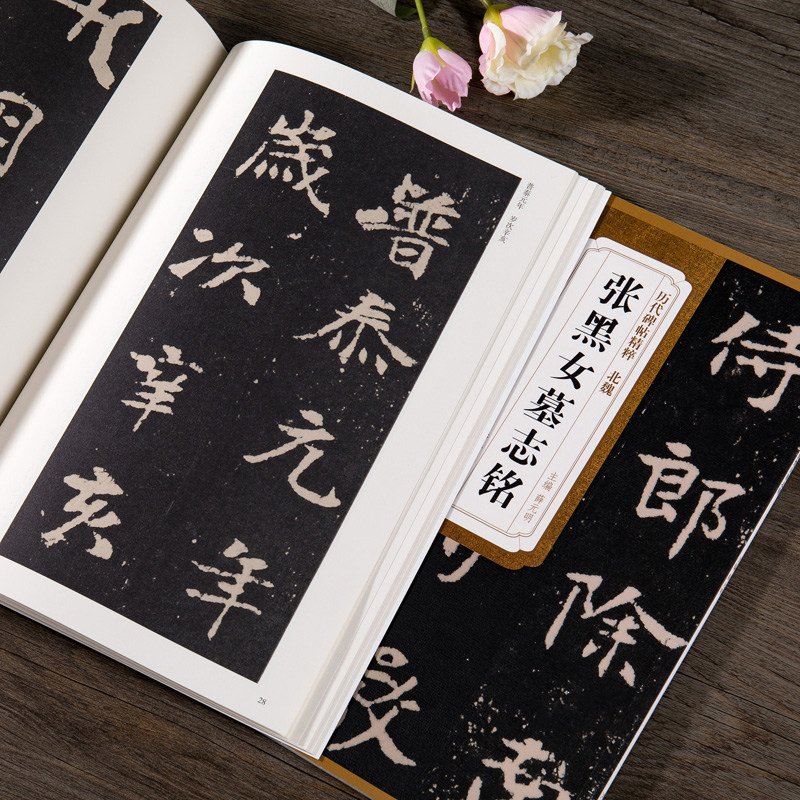 普泰元年
歲次辛亥
普泰元年 岁次辛亥
28
历代碑帖精粹 北魏
张黑女墓志铭
主编 薛元明
侍郎除